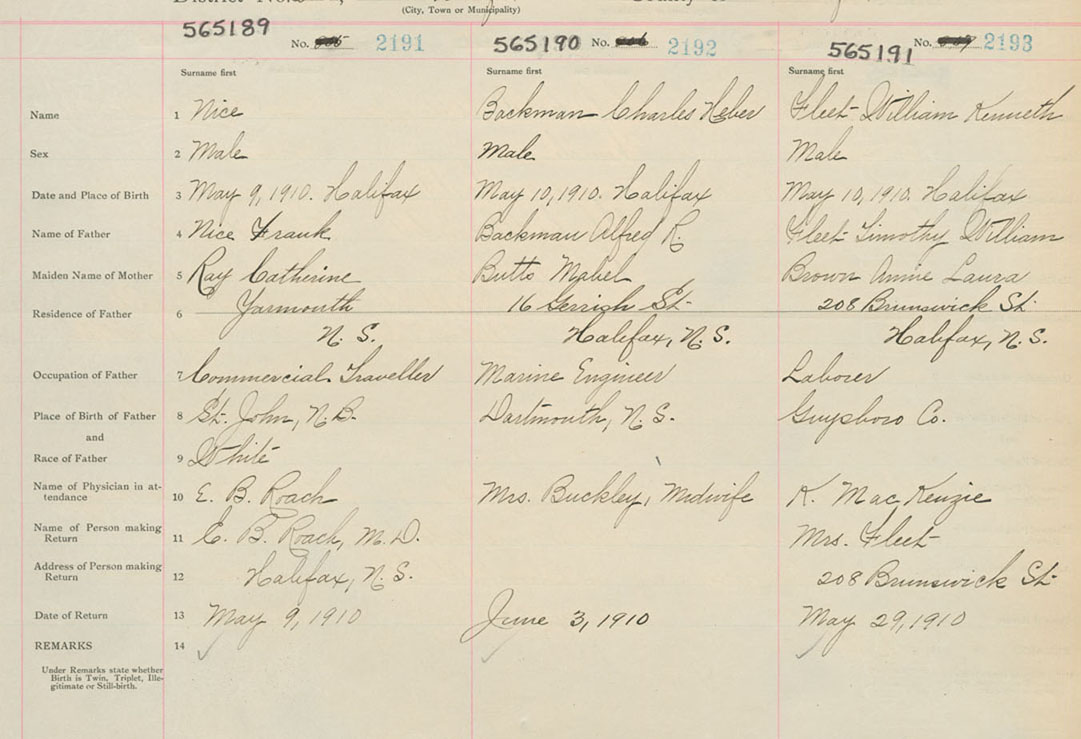 District No.
County of
(City, Town or Municipality)
565189 No. 2191 565190 No. 2192 565191 No. 2193
Surname first Surname first Surname first
Name 1 Nice Backman Charles Heber Fleet William Kenneth
Sex 2 Male Male Male
Date and Place of Birth 3 May 9, 1910. Halifax May 10, 1910. Halifax May 10, 1910. Halifax
Name of Father 4 Nice Frank Backman Alfred R. Fleet Timothy William
Maiden Name of Mother 5 Ray Catherine Butts Mabel Brown Annie Laura
Residence of Father 6 Yarmouth 16 Gerrish St. 208 Brunswick St.
N. S. Halifax, N. S. Halifax, N. S.
Occupation of Father 7 Commercial Traveller Marine Engineer Laborer
Place of Birth of Father 8 St. John, N. B. Dartmouth, N. S. Guysboro Co.
and
Race of Father 9 White
Name of Physician in at-
tendance 10 E. B. Roach Mrs. Buckley, Midwife K. MacKenzie
Name of Person making
Return 11 E. B. Roach, M. D. Mrs. Fleet
Address of Person making
Return 12 Halifax, N. S. 208 Brunswick St.
Date of Return 13 May 9, 1910 June 3, 1910 May 29, 1910
REMARKS 14
Under Remarks state whether
Birth is Twin, Triplet, Ille-
gitimate or Still-birth.